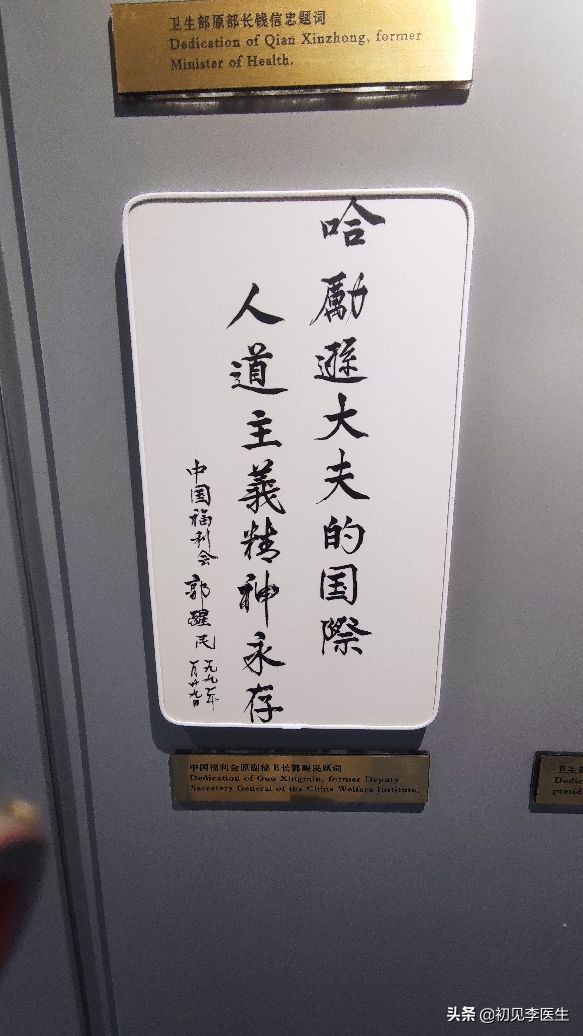 卫生部原部长钱信忠题词
Dedication of Qian Xinzhong, former
Minister of Health.
哈勵遜大夫的国際
人道主義精神永存
中国福利会 郭醒民
一九九一年
一月廿九日
中国福利会原副秘书长郭醒民题词
Dedication of Guo Xingmin, former Deputy
Secretary General of the China Welfare Institute.
卫生部
Dedic
presid
头条 @初见李医生